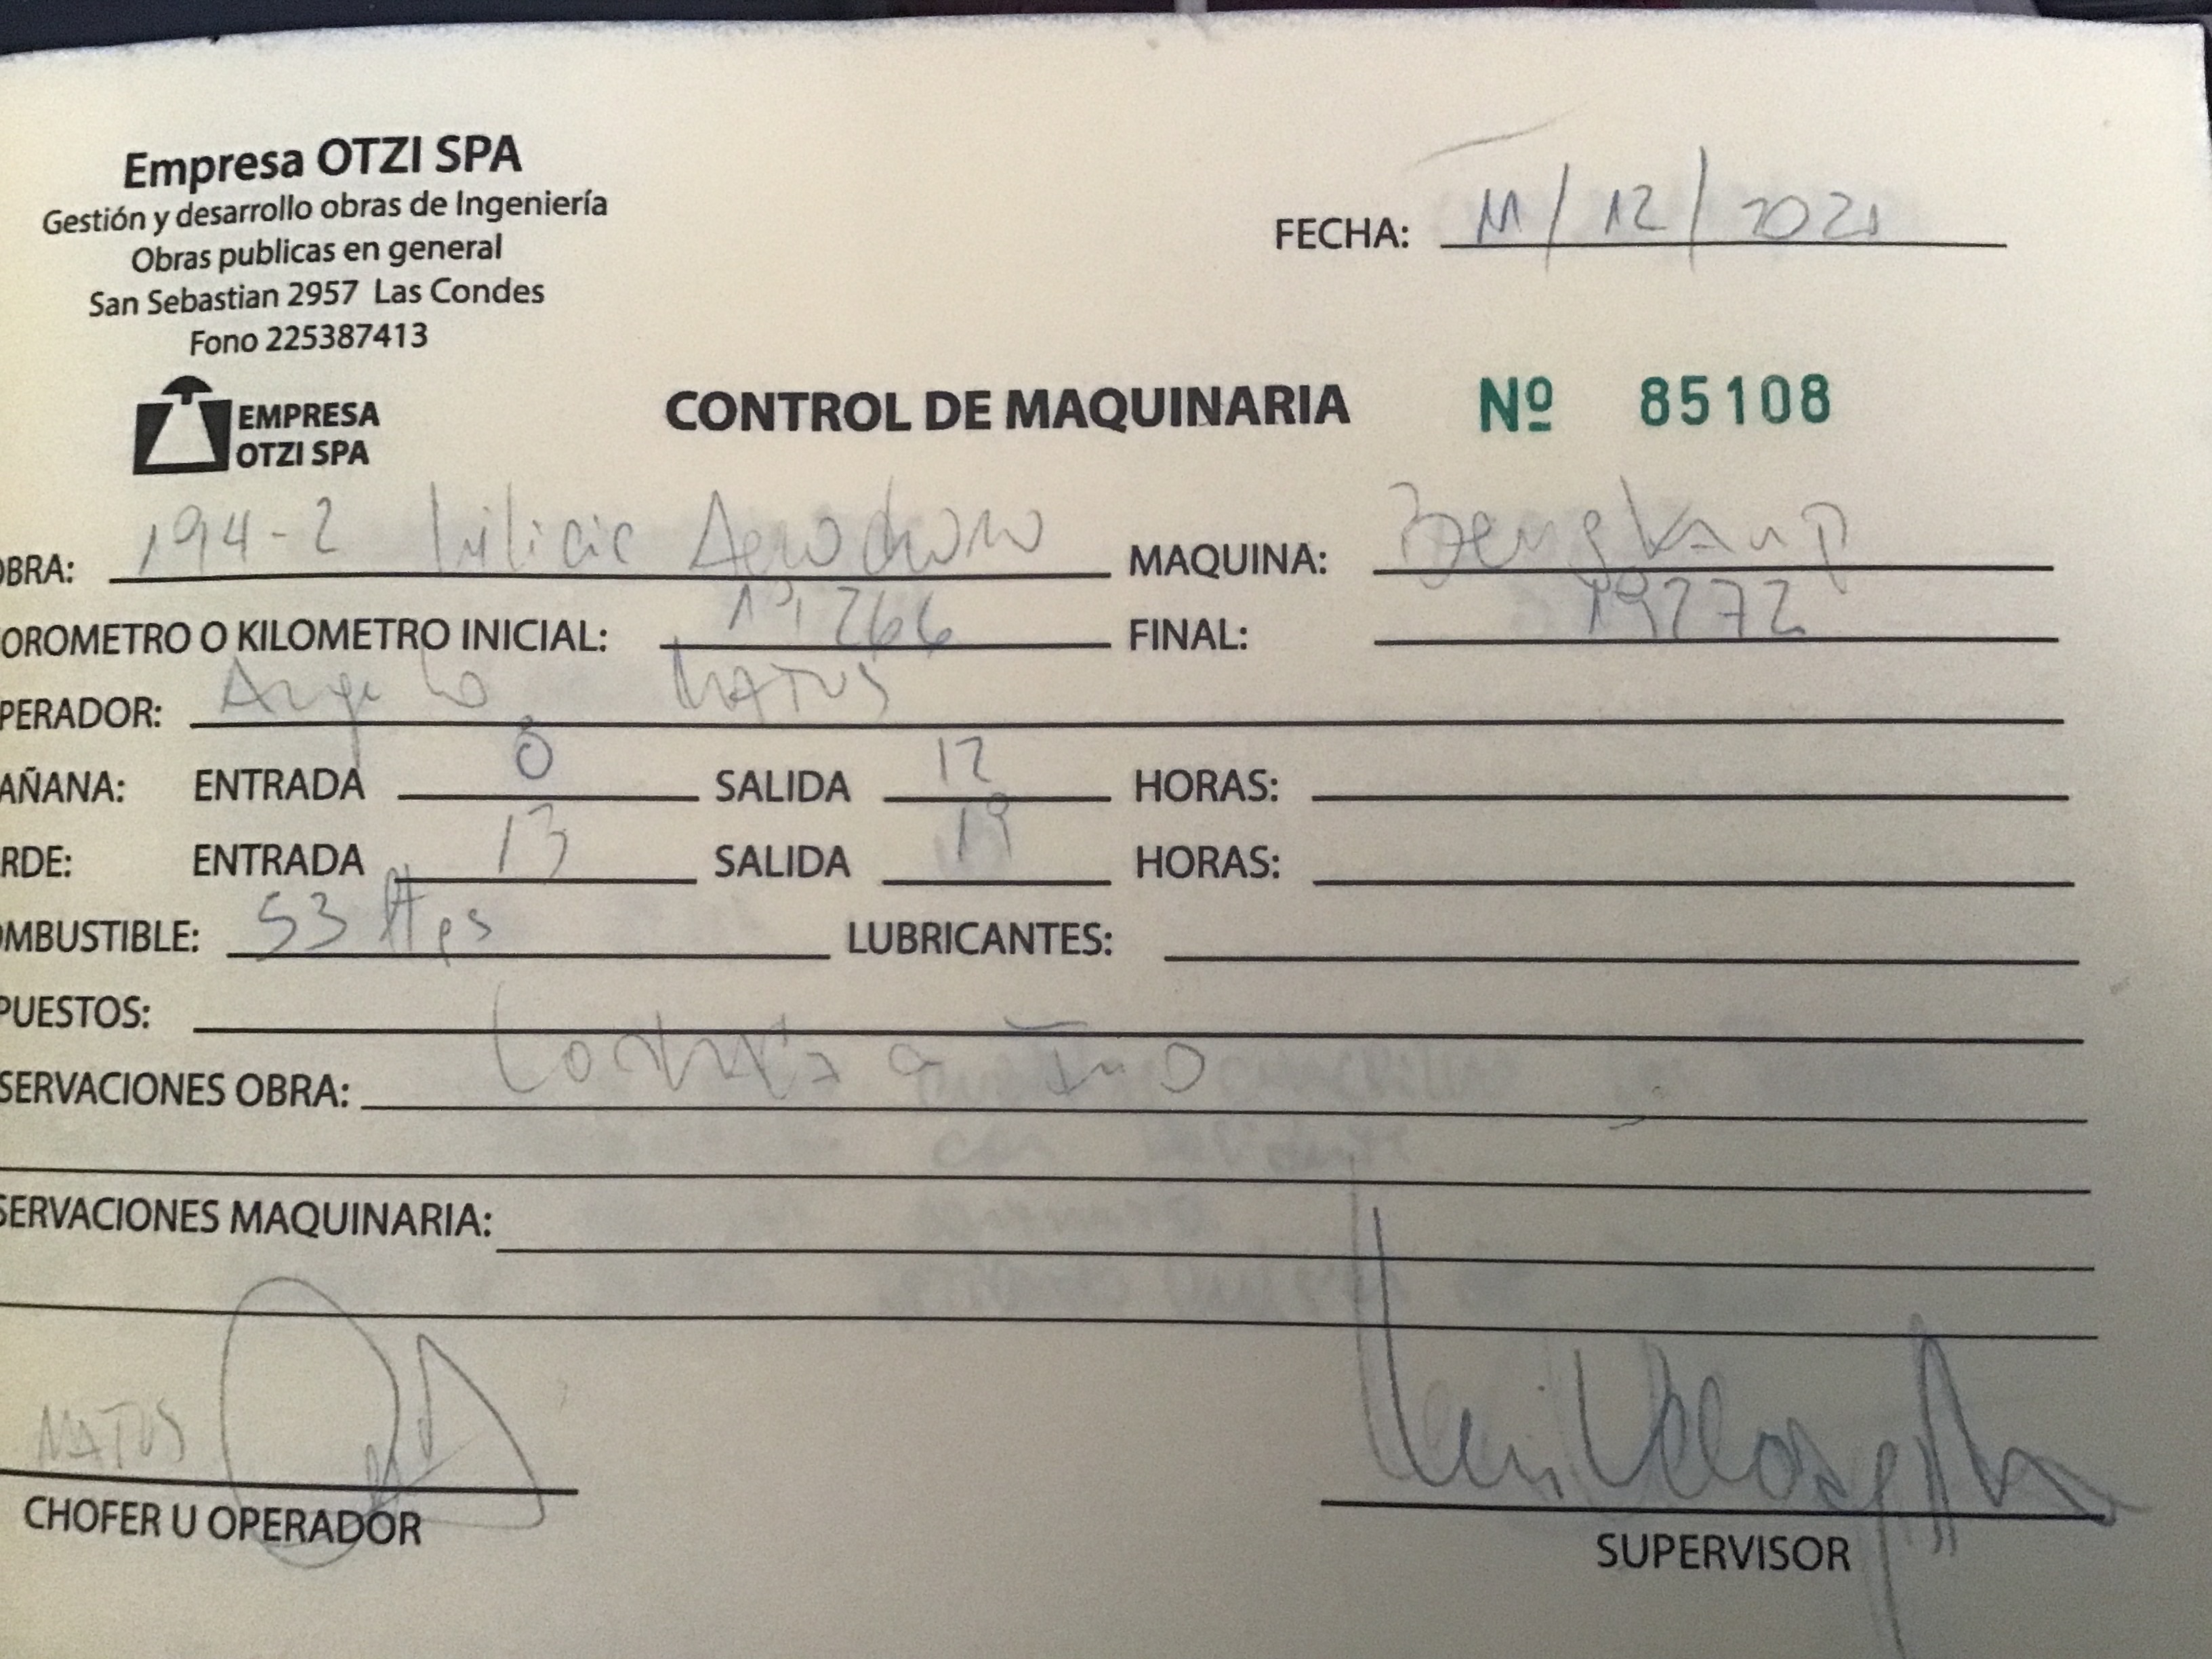 Empresa OTZI SPA
Gestión y desarrollo obras de Ingeniería
Obras publicas en general
San Sebastian 2957 Las Condes
Fono 225387413
FECHA: 11/12/2021
EMPRESA
OTZI SPA
CONTROL DE MAQUINARIA Nº 85108
OBRA: 194-2 MAQUINA:
OROMETRO O KILOMETRO INICIAL: 19266 FINAL: 19272
PERADOR: Angelo MATUS
AÑANA: ENTRADA 8 SALIDA 12 HORAS:
RDE: ENTRADA 13 SALIDA 19 HORAS:
OMBUSTIBLE: 53 LUBRICANTES:
PUESTOS:
SERVACIONES OBRA:
SERVACIONES MAQUINARIA:
MATUS
CHOFER U OPERADOR
SUPERVISOR